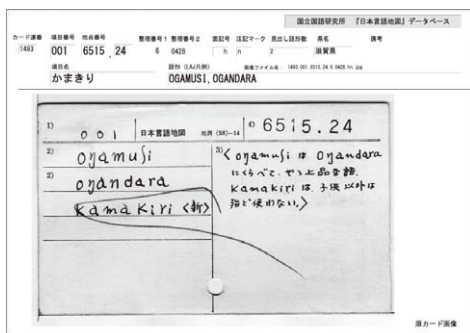 国立国語研究所 『日本言語地図』 データベース
カード連番 項目番号 地点番号 整理番号1 整理番号2 面記号 注記マーク 見出し語形数 県名 備考
1493 001 6515 .24 6 0428 h n 2 滋賀県
項目名 語形 (LAJ凡例) 画像ファイル名: 1493 001 6515.24 6 0428 hn.jpg
かまきり OGAMUSI, OGANDARA
1) 001 日本言語地図 地調 (58)-14 4) 6515.24
2) oŋamuʃi
2) oŋandara
kamakiri <新>
3) <oŋamuʃi は oŋandara
にくらべて、やゝ上品な語。
kamakiri は、子供以外は
殆ど使わない。>
原カード画像